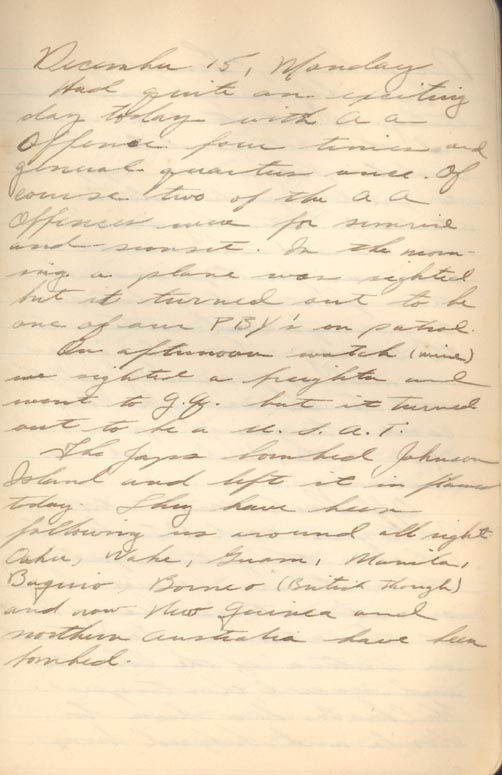 December 15, Monday
Had quite an exciting
day today with A A
Offence four times and
general quarters once. Of
course two of the A A
Offences were for sunrise
and sunset. In the morn-
ing a plane was sighted
but it turned out to be
one of our PBY's on patrol.
On afternoon watch (mine)
we sighted a freighter and
went to G.Q. but it turned
out to be a U.S.A.T.
The Japs bombed Johnson
Island and left it in flames
today. They have been
following us around all right
Oahu, Wake, Guam, Manila,
Baguio, Borneo (British though)
and now New Guinea and
northern Australia have been
bombed.